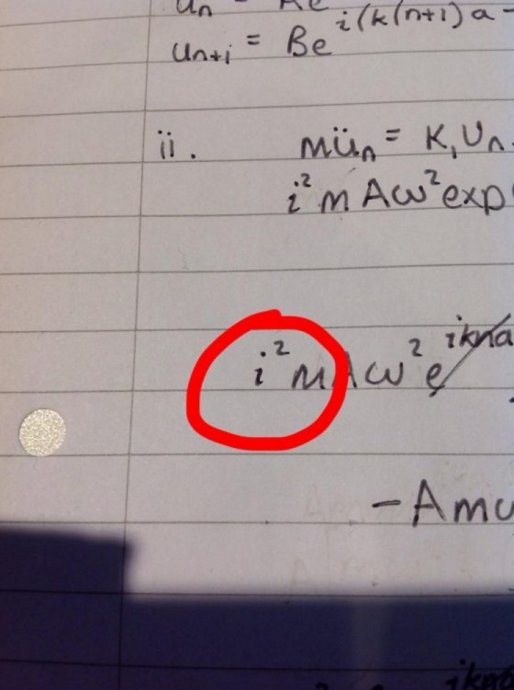 uₙ = Ae
uₙ₊₁ = Be^i(k(n+1)a -
ii. müₙ = K₁Uₙ
i²mAω²exp
i²mAω²e^ikna
-Amω
ikna